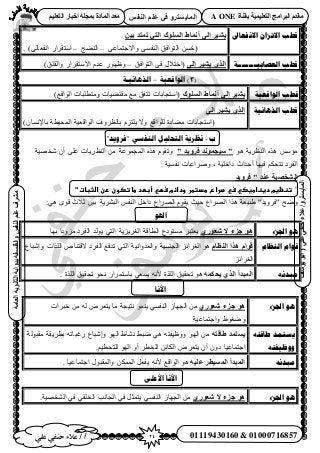 مقدم البرامج التعليمية بقناة A ONE
المايسترو فى علم النفس
معد المادة بمجلة اخبار التعليم
قطب الاتزان الانفعالى
يشير الى أنماط السلوك التى تمتد بين
(حسن التوافق النفسى والاجتماعى – النضج – استقرار انفعالى) .
قطب العصابيـــــة
الذى يشير الى (اختلال فى التوافق – وظهور عدم الاستقرار والقلق)
(٣) الواقعية – الذهانية
قطب الواقعية
يشير الى أنماط السلوك (استجابات تتفق مع مقتضيات ومتطلبات الواقع)
قطب الذهانية
الذى يشير الى
(استجابات مضادة للواقع ولا يلتزم بالظروف الواقعية المحيطة بالإنسان)
ب - نظرية التحليل النفسي "فرويد"
مؤسس هذه النظرية هو " سيجموند فرويد " وتقوم هذه المجموعة من النظريات على أن شخصية
الفرد تتحكم فيها أحداث داخلية ، وصراعات نفسية .
الشخصية عند " فرويد
تنظيم ديناميكي في صراع مستمر ودائم فهي أبعد ما تكون عن الثبات"
يوضح "فرويد" طبيعة هذا الصراع حيث يقوم الصراع داخل النفس البشرية بين ثلاث قوى هي:
الهو
هو الجزء
هو جزء لا شعوري يعتبر مستودع الطاقة الغريزية التي يولد الفرد مزودا بها
قوام النظام
قوام هذا النظام هو الغرائز الجنسية والعدوانية التي تدفع الفرد لاقتناص اللذات وإشباع
الغرائز
مبدئه
المبدأ الذي يحكمه هو تحقيق اللذة لأنه يسعى باستمرار نحو تحقيق اللذة .
الأنا
هو الجزء
هو جزء شعوري من الجهاز النفسي ينمو نتيجة ما يتعرض له من خبرات
وضغوط واجتماعية
يستمد طاقته
ووظيفته
يستمد طاقته من الهو ووظيفته هي ضبط نشاط الهو وإشباع رغباته بطريقة مقبولة
اجتماعيا دون أن يتعرض الكائن للخطر أو الهو للتحطيم.
مبدئه
المبدأ المسيطر عليه هو الواقع لأنه يفعل الممكن والمقبول اجتماعيا .
الأنا الأعلى
هو الجزء
هو جزء لا شعوري من الجهاز النفسي يتمثل في الجانب الخلقي في الشخصية.
01119430160 & 01000716857
٢٤
أ / علاء حنفي علي